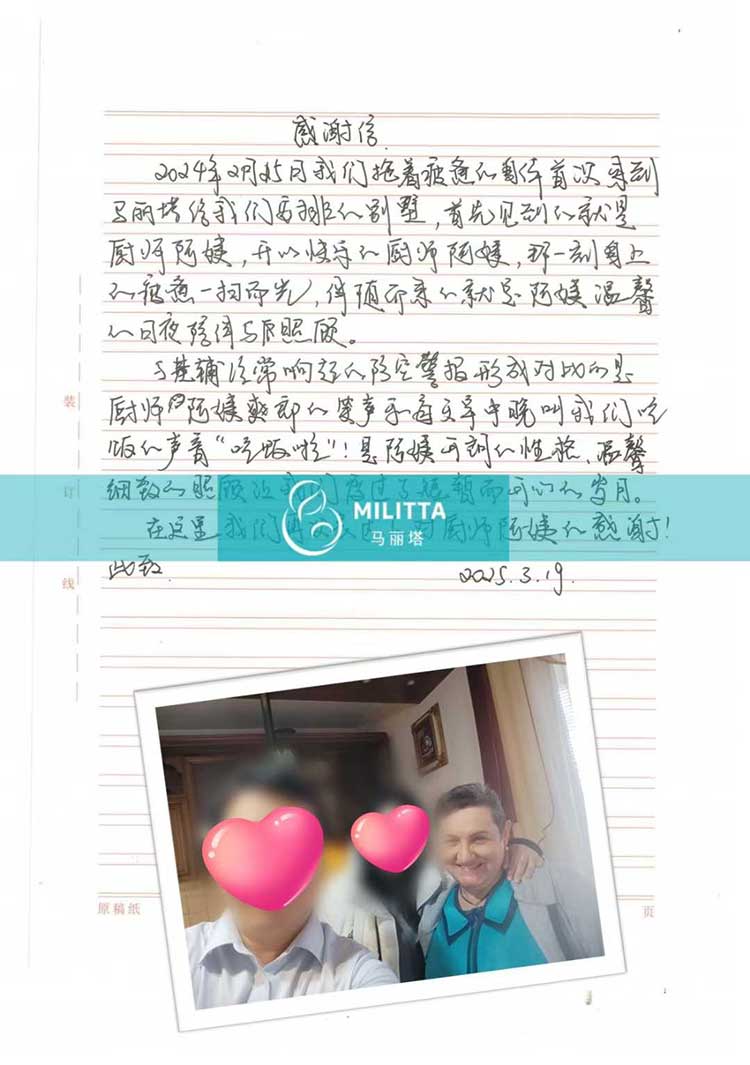 感谢信
2024年2月25日我们拖着疲惫的身体首次来到
马丽塔给我们安排的别墅，首先见到的就是
厨师阿姨，开心快乐的厨师阿姨，那一刻身上
的疲惫一扫而光，伴随而来的就是阿姨温馨
的日夜陪伴与照顾。
与基辅经常响起的防空警报形成对比的是
厨师阿姨爽朗的笑声和每天早中晚叫我们吃
饭的声音“吃饭啦”！是阿姨开朗的性格、温馨
细致的照顾让我们度过了短暂而开心的岁月。
在这里我们再次 对厨师阿姨的感谢！
此致
2025.3.19.
MILITTA
马丽塔
装
订
线
原稿纸
页